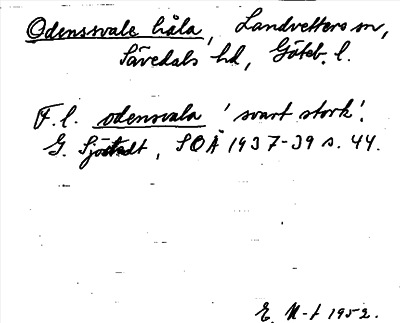 Odenssvale håla, Landvetters sn,
Sävedals hd, Göteb. l.
F.l. odensvala 'svart stork'.
G. Sjöstedt, SOÅ 1937-39 s. 44.
E. N-t 1952.